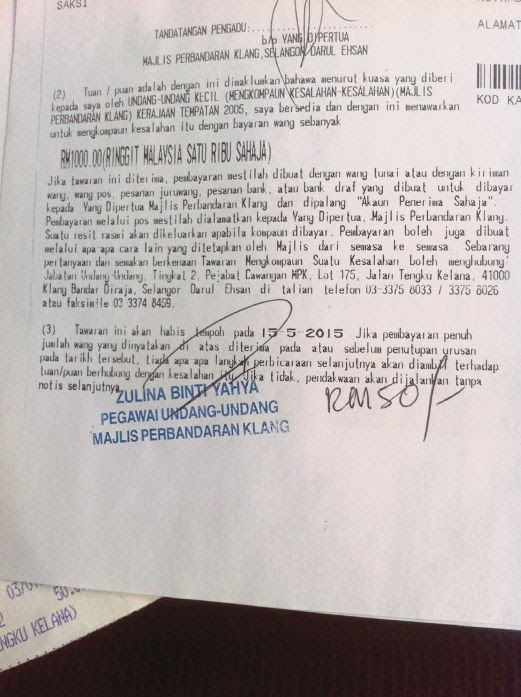 SAKSI
TANDATANGAN PENGADU:
b/p YANG DIPERTUA
MAJLIS PERBANDARAN KLANG,SELANGOR DARUL EHSAN
ALAMAT
KOD KA
(2) Tuan / puan adalah dengan ini dimaklumkan bahawa menurut kuasa yang diberi
kepada saya oleh UNDANG-UNDANG KECIL (MENGKOMPAUN KESALAHAN-KESALAHAN)(MAJLIS
PERBANDARAN KLANG) KERAJAAN TEMPATAN 2005, saya bersedia dan dengan ini menawarkan
untuk mengkompaun kesalahan itu dengan bayaran wang sebanyak
RM1000.00(RINGGIT MALAYSIA SATU RIBU SAHAJA)
Jika tawaran ini diterima, pembayaran mestilah dibuat dengan wang tunai atau dengan kiriman
wang, wang pos, pesanan juruwang, pesanan bank, atau bank draf yang dibuat untuk dibayar
kepada Yang Dipertua Majlis Perbandaran Klang dan dipalang "Akaun Penerima Sahaja".
Pembayaran melalui pos mestilah dialamatkan kepada Yang Dipertua, Majlis Perbandaran Klang.
Suatu resit rasmi akan dikeluarkan apabila kompaun dibayar. Pembayaran boleh juga dibuat
melalui apa apa cara lain yang ditetapkan oleh Majlis dari semasa ke semasa. Sebarang
pertanyaan dan semakan berkenaan Tawaran Mengkompaun Suatu Kesalahan boleh menghubungi
Jabatan Undang-Undang, Tingkat 2, Pejabat Cawangan MPK, Lot 175, Jalan Tengku Kelana, 41000
Klang Bandar Diraja, Selangor Darul Ehsan di talian telefon 03-3375 8033 / 3375 8026
atau faksimile 03 3374 8459.
(3) Tawaran ini akan habis tempoh pada 15-5-2015 Jika pembayaran penuh
jumlah wang yang dinyatakan di atas diterima pada atau sebelum penutupan urusan
pada tarikh tersebut, tiada apa apa langkah perbicaraan selanjutnya akan diambil terhadap
tuan/puan berhubung dengan kesalahan itu. Jika tidak, pendakwaan akan dijalankan tanpa
notis selanjutnya.
ZULINA BINTI YAHYA
PEGAWAI UNDANG-UNDANG
MAJLIS PERBANDARAN KLANG
RM50/-
NGKU KELANA)